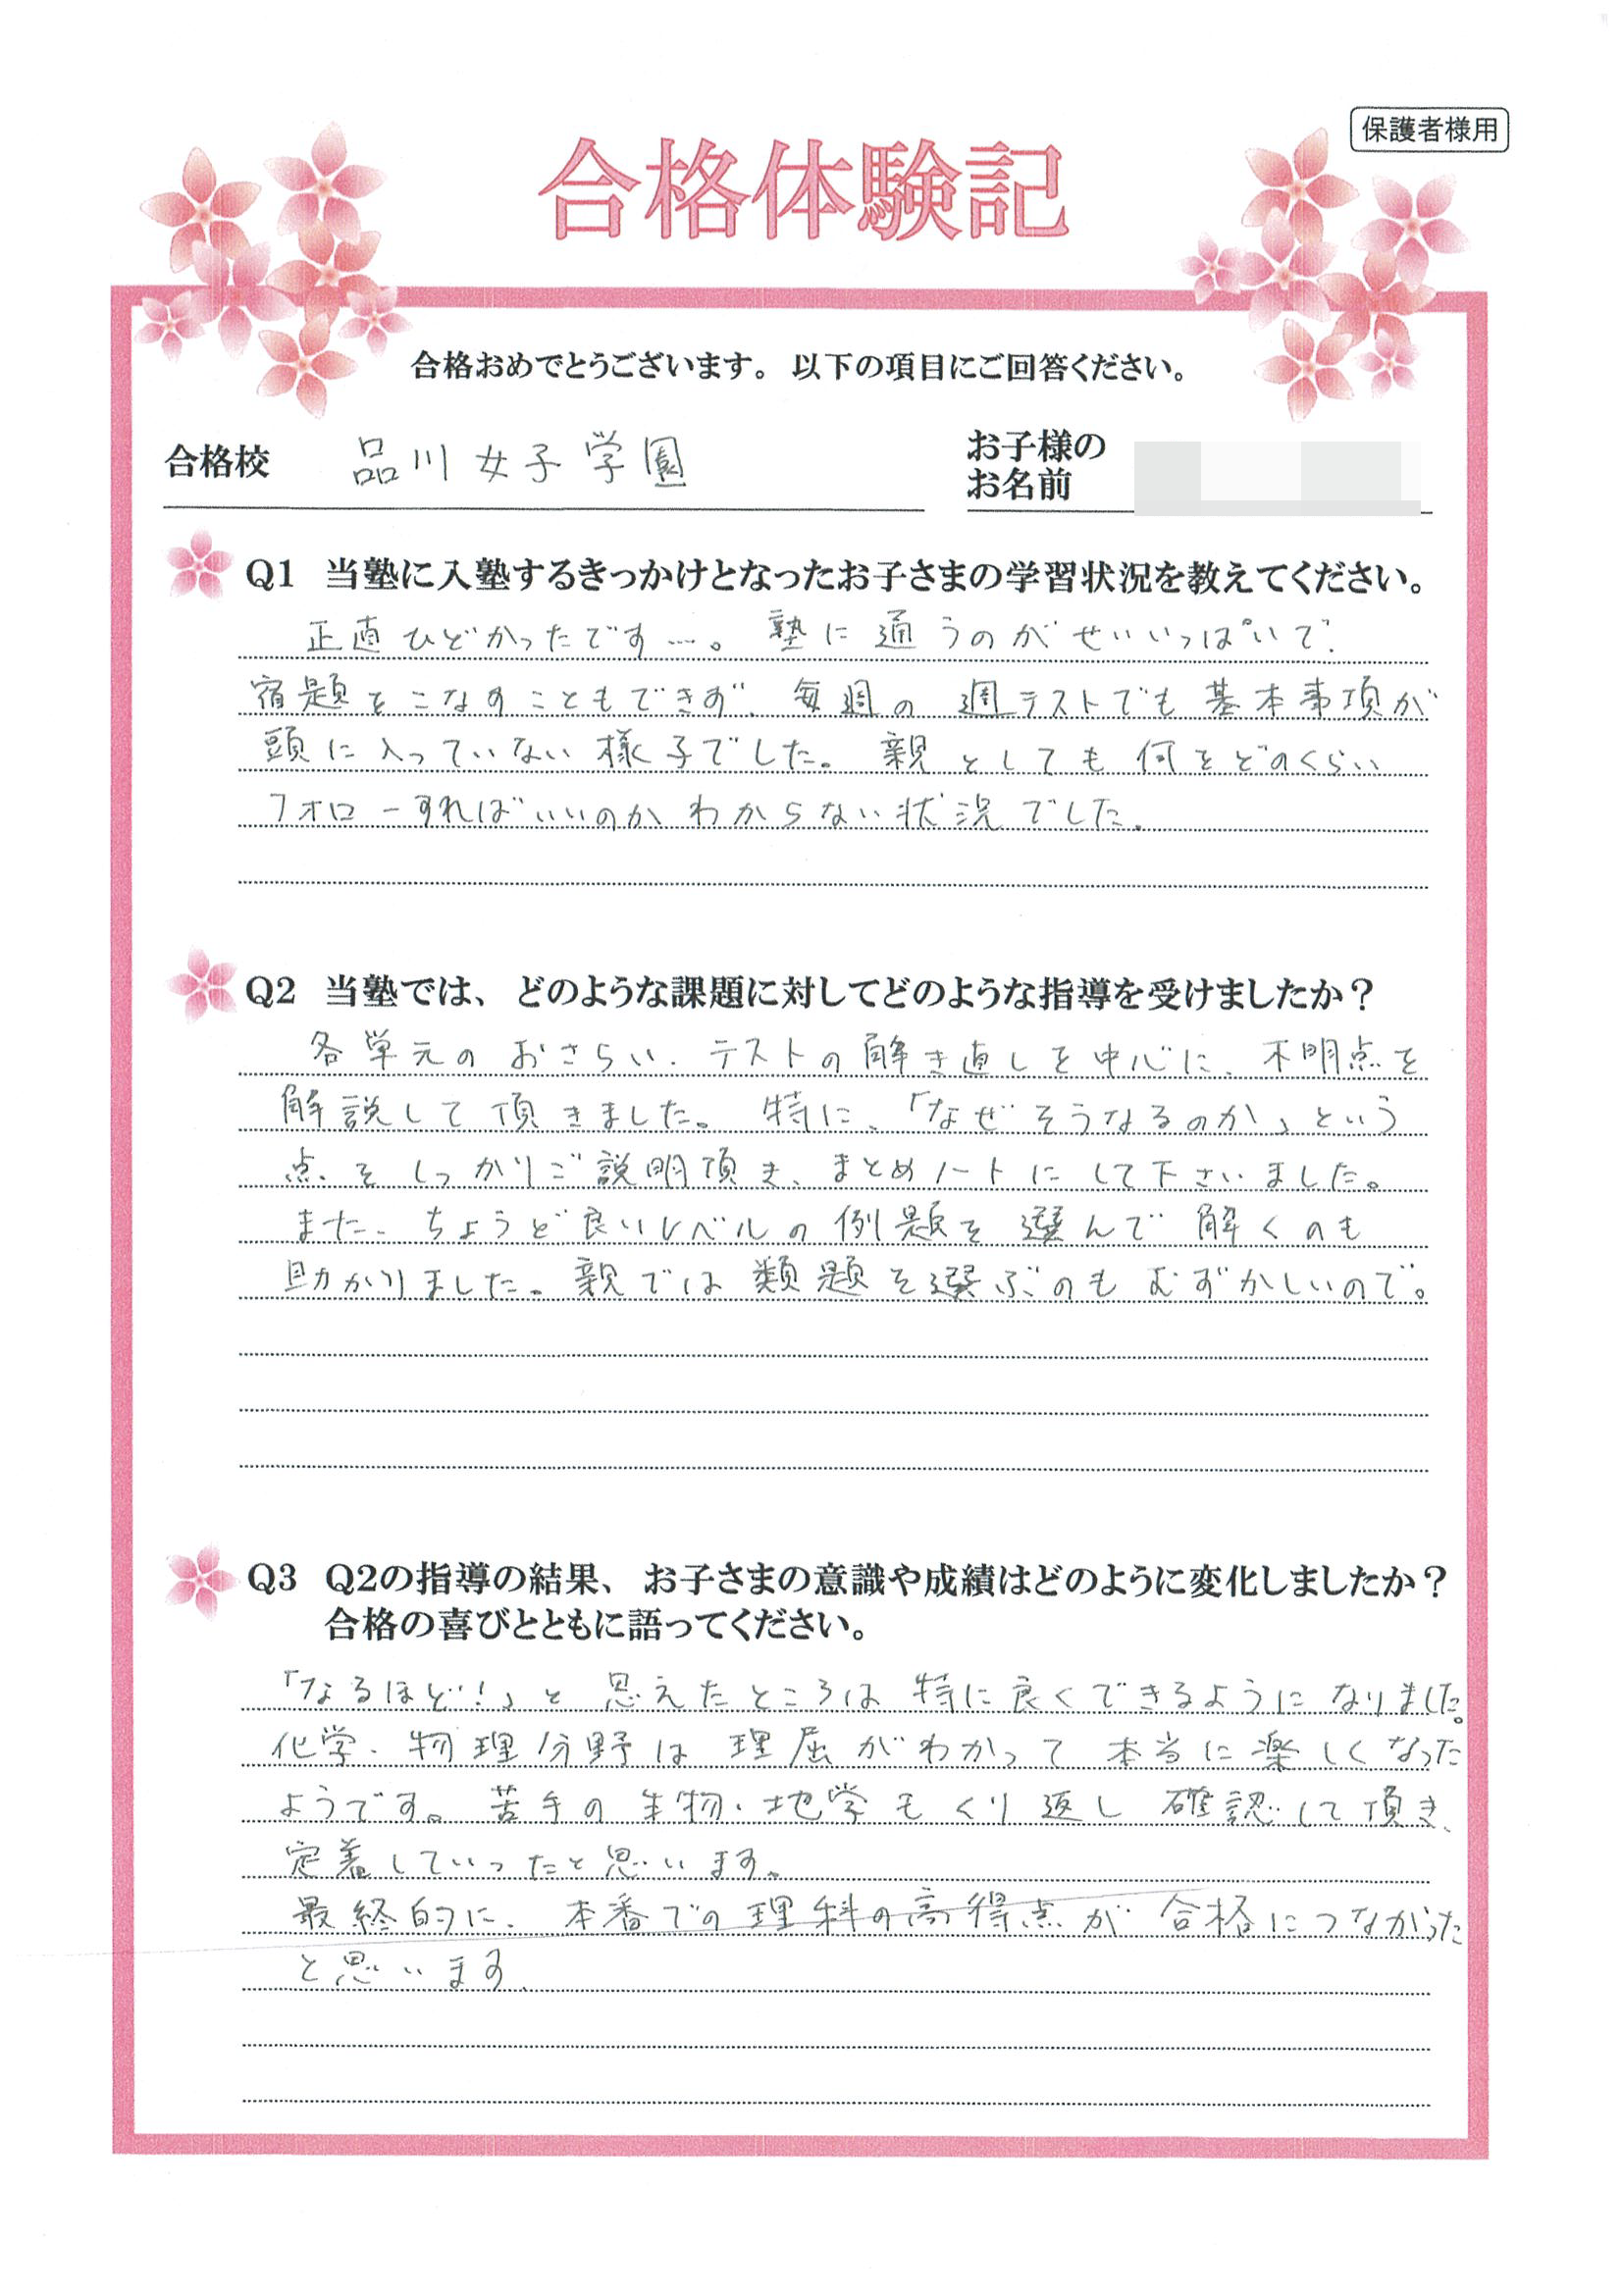 保護者様用
合格体験記
合格おめでとうございます。以下の項目にご回答ください。
合格校 品川女子学園
お子様の
お名前
Q1 当塾に入塾するきっかけとなったお子さまの学習状況を教えてください。
正直ひどかったです…。塾に通うのがせいいっぱいで、
宿題をこなすこともできず、毎週の週テストでも基本事項が
頭に入っていない様子でした。親としても何をどのくらい
フォローすればいいのかわからない状況でした。
Q2 当塾では、どのような課題に対してどのような指導を受けましたか？
各単元のおさらい、テストの解き直しを中心に、不明点を
解説して頂きました。特に、「なぜそうなるのか」という
点をしっかりご説明頂き、まとめノートにして下さいました。
また、ちょうど良いレベルの例題を選んで解くのも
助かりました。親では類題を選ぶのもむずかしいので。
Q3 Q2の指導の結果、お子さまの意識や成績はどのように変化しましたか？
合格の喜びとともに語ってください。
「なるほど！」と思えたところは特に良くできるようになりました。
化学、物理分野は理屈がわかって本当に楽しくなった
ようです。苦手の生物・地学もくり返し確認して頂き、
定着していったと思います。
最終的に、本番での理科の高得点が合格につながった
と思います。